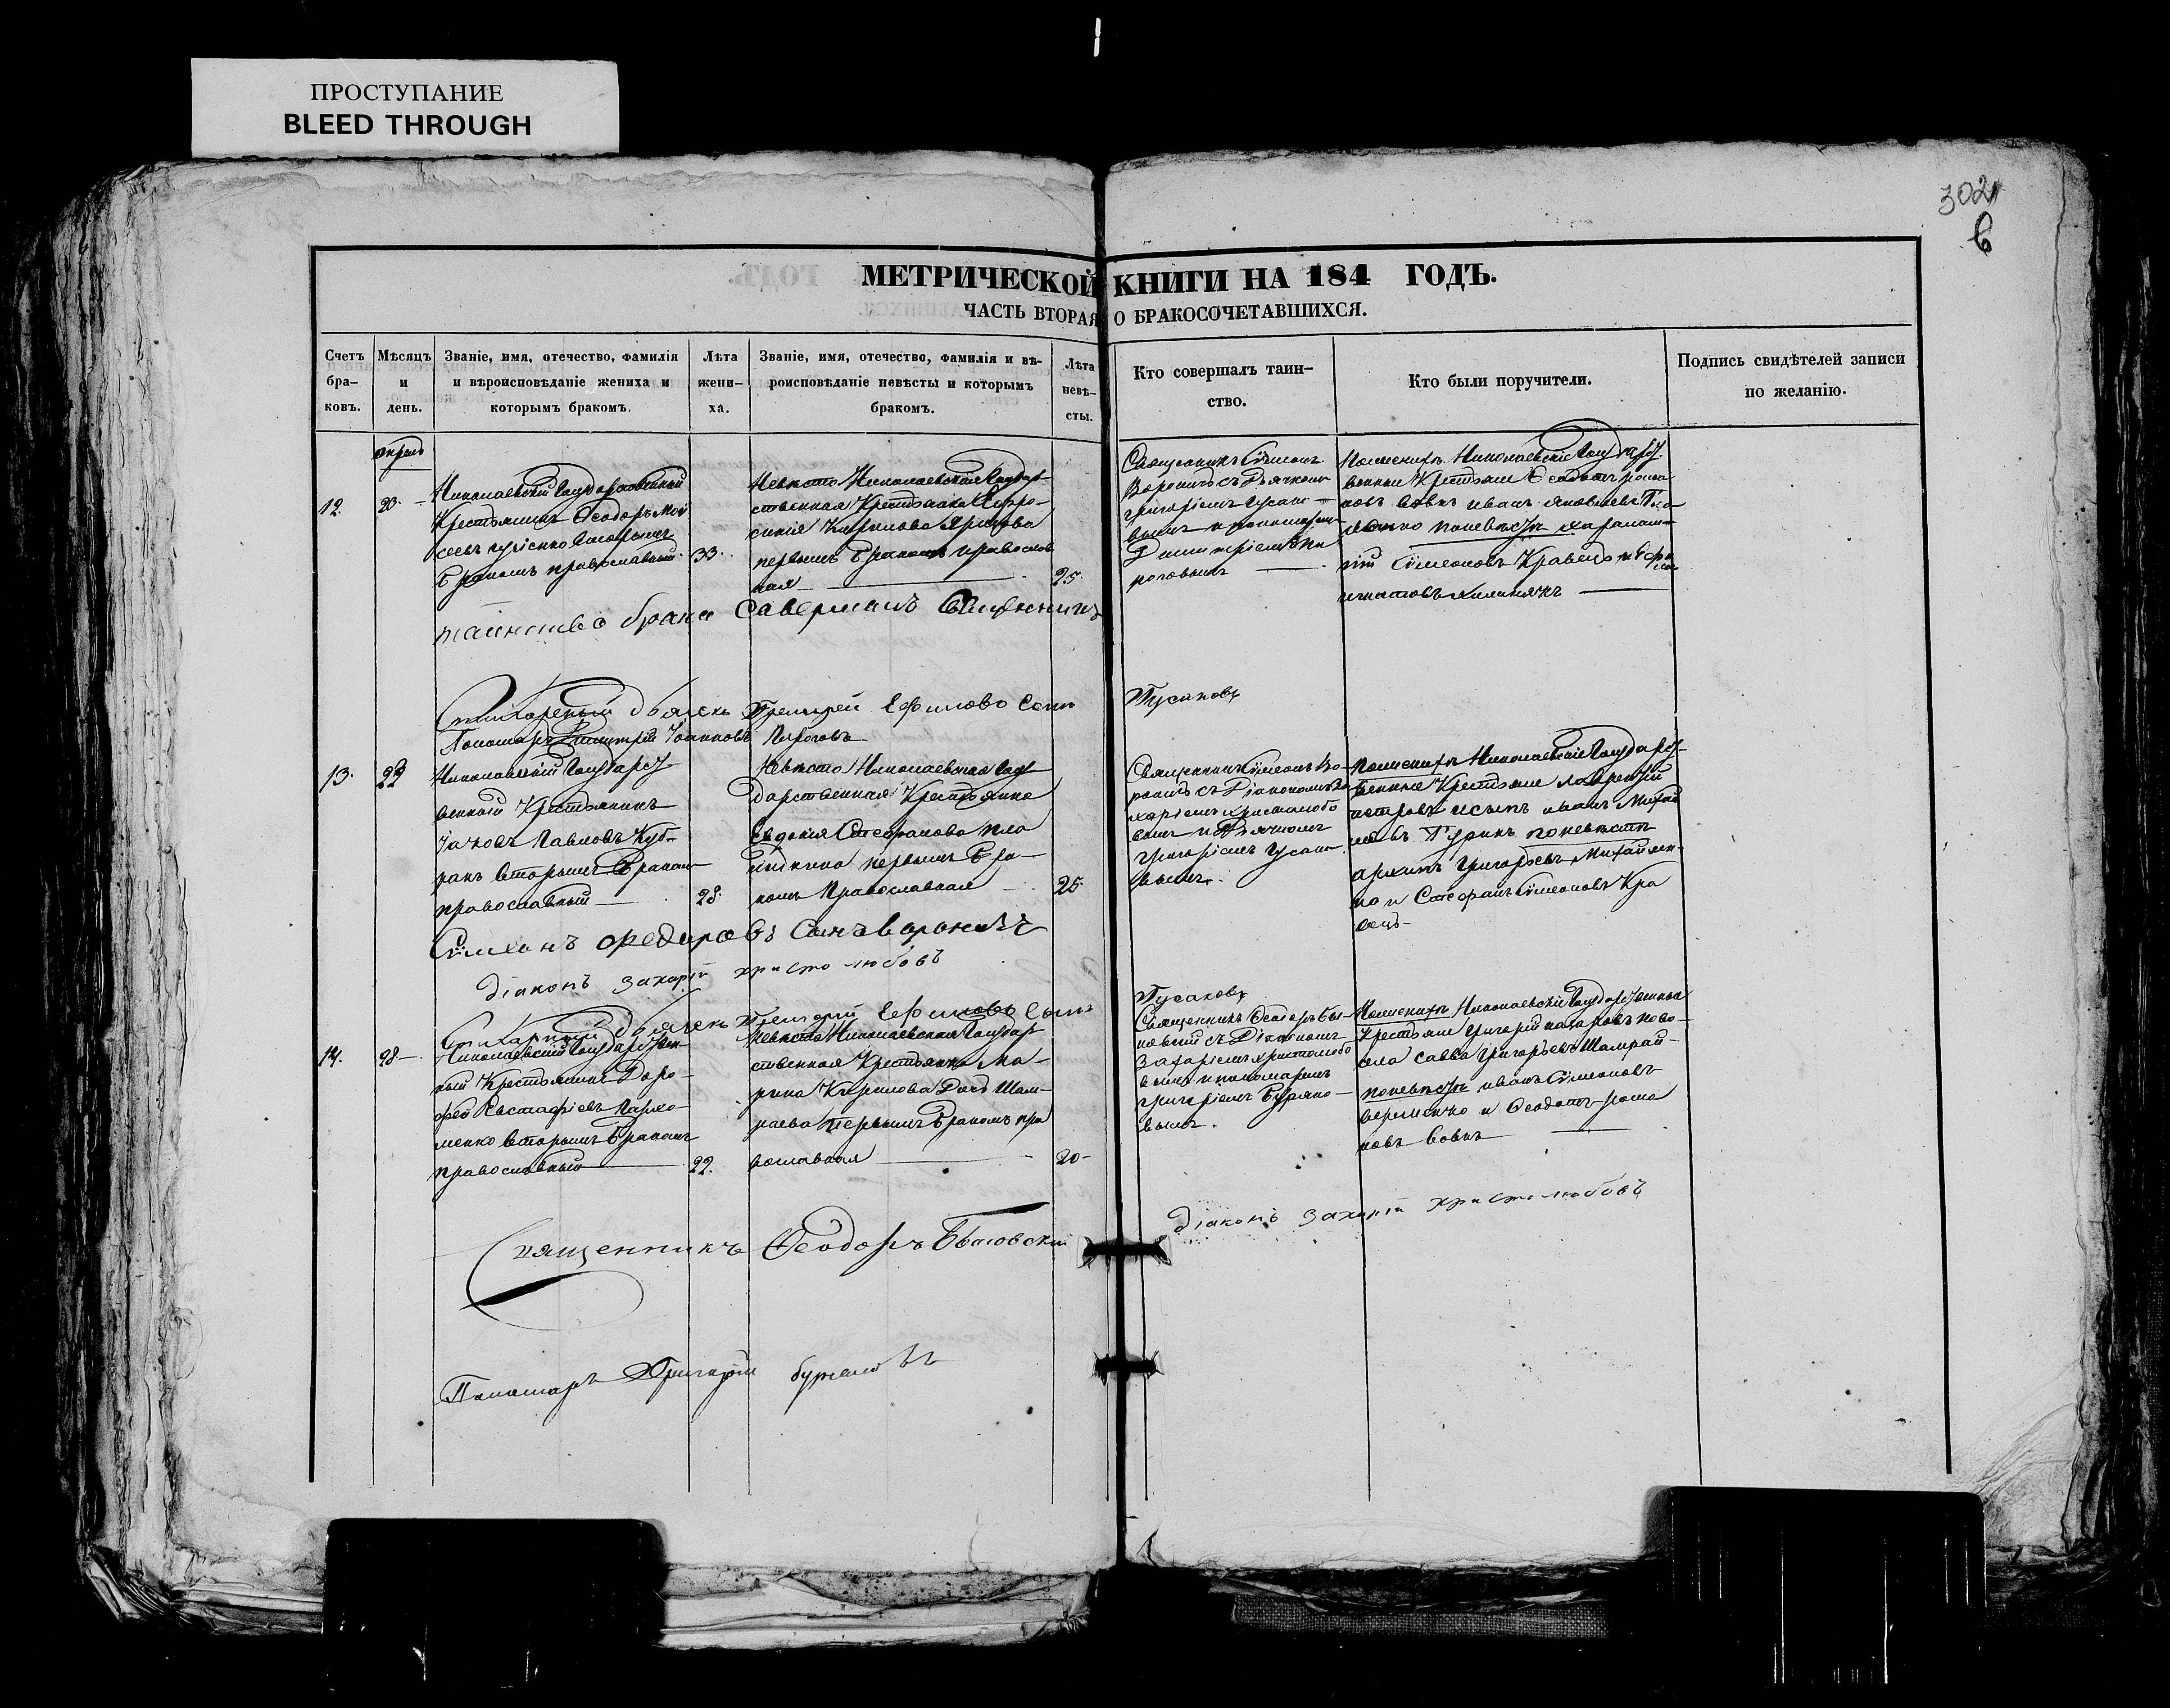 ПРОСТУПАНИЕ
BLEED THROUGH
302
6
МЕТРИЧЕСКОЙ КНИГИ НА 184 ГОДЪ.
ЧАСТЬ ВТОРАЯ О БРАКОСОЧЕТАВШИХСЯ.
Счетъ бра-ковъ.
Мѣсяцъ и день.
Званіе, имя, отечество, фамилія
и вѣроисповѣданіе жениха и
которымъ бракомъ.
Лѣта жени-ха.
Званіе, имя, отечество, фамилія и вѣ-
роисповѣданіе невѣсты и которымъ
бракомъ.
Лѣта невѣ-сты.
Кто совершалъ таин-
ство.
Кто были поручители.
Подпись свидѣтелей записи
по желанію.
апрель
12.
20.
Николаевскій Государственный
Крестьянинъ Ѳеодоръ Мой
сеевъ вторымъ
бракомъ православный
33.
Невѣста Николаевская Государ
ственная Крестьянка Евфро-
синія Кирилова
первымъ бракомъ православ
ная
25.
Священникъ Сѵмеонъ
Вороничъ съ Дьячкомъ
григоріемъ Гусако-
вымъ и пономаремъ
Димитріемъ Пи
роговымъ
Поженихѣ Николаевскіе Государст
венные Крестьяне Ѳеодотъ рома
новъ вовкъ иванъ Яковлевъ
поневѣстѣ
Сѵмеоновъ Кравецъ
игнатовъ
таинство брака Савершилъ Священникъ
Стихарный дьячекъ Григорей Ефимовъ Сынъ
Гусаковъ
Пономарь Димитрій Іоанновъ Пироговъ
13.
22
Николаевскій Государст
венный Крестьянинъ
Іаковъ Павловъ Куб-
ракъ вторымъ Бракомъ
православный
28.
Невѣста Николаевская Госу
дарственная Крестьянка
Евдокія Стефанова
первымъ бра-
комъ Православная
25.
Священникъ Сѵмеонъ Во
роничъ съ Діакономъ За
харіемъ христолюбо
вымъ и Дьячкомъ
григоріемъ Гусако
вымъ.
Поженихѣ Николаевскіе Государст
венные Крестьяне Лаврентій
петровъ иванъ Михай
ловъ поневѣстѣ
архипъ Григорьевъ Михайлен-
ко и Стефанъ Сѵмеоновъ Кра
вецъ
Сѵмеонъ Федаровъ Сынъ вараничъ
діаконъ захарій христолюбовъ
Стихарный дьячекъ Григорій Ефимовъ Сынъ
Гусаковъ
14.
28
Николаевскій Государствен-
ный Крестьянинъ Доро-
фей Евстафіевъ Пархо-
менко вторымъ Бракомъ
православный
22.
Невѣста Николаевская Государ
ственная Крестьянка Ма-
рина Кирилова Дочь Шам-
раева первымъ Бракомъ пра
вославная
20
Священникъ Ѳеодоръ Бы-
ковскій съ Діакономъ
Захаріемъ христолюбо
вымъ и пономаремъ
григоріемъ
вымъ.
Поженихѣ Николаевскіе Государственные
Крестьяне Григорій назаровъ Ново-
села савва григорьевъ Шамрай
поневѣстѣ иванъ Сѵмеоновъ
веременко и Ѳеодотъ рома
новъ вовкъ
діаконъ захарій христолюбовъ
Священникъ Ѳеодоръ Быковскій
Пономарь Григорій